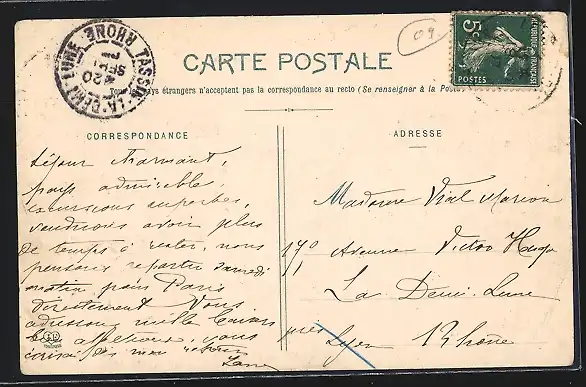 TASSIN-LA-DEMI-LUNE RHONE
20 SEPT
09
5c
RÉPUBLIQUE FRANÇAISE
POSTES
CARTE POSTALE
Tous pays étrangers n'acceptent pas la correspondance au recto (Se renseigner à la Poste)
CORRESPONDANCE
ADRESSE
Séjour charmant,
pays admirable,
excursions superbes,
voudrions avoir plus
de temps à rester, nous
pensons repartir samedi
matin pour Paris
directement Vous
adressons mille baisers
affectueux, vous
écrirai dès mon retour
Madame Vial Marion
170 Avenue Victor Hugo
La Demi-Lune
près Lyon Rhône